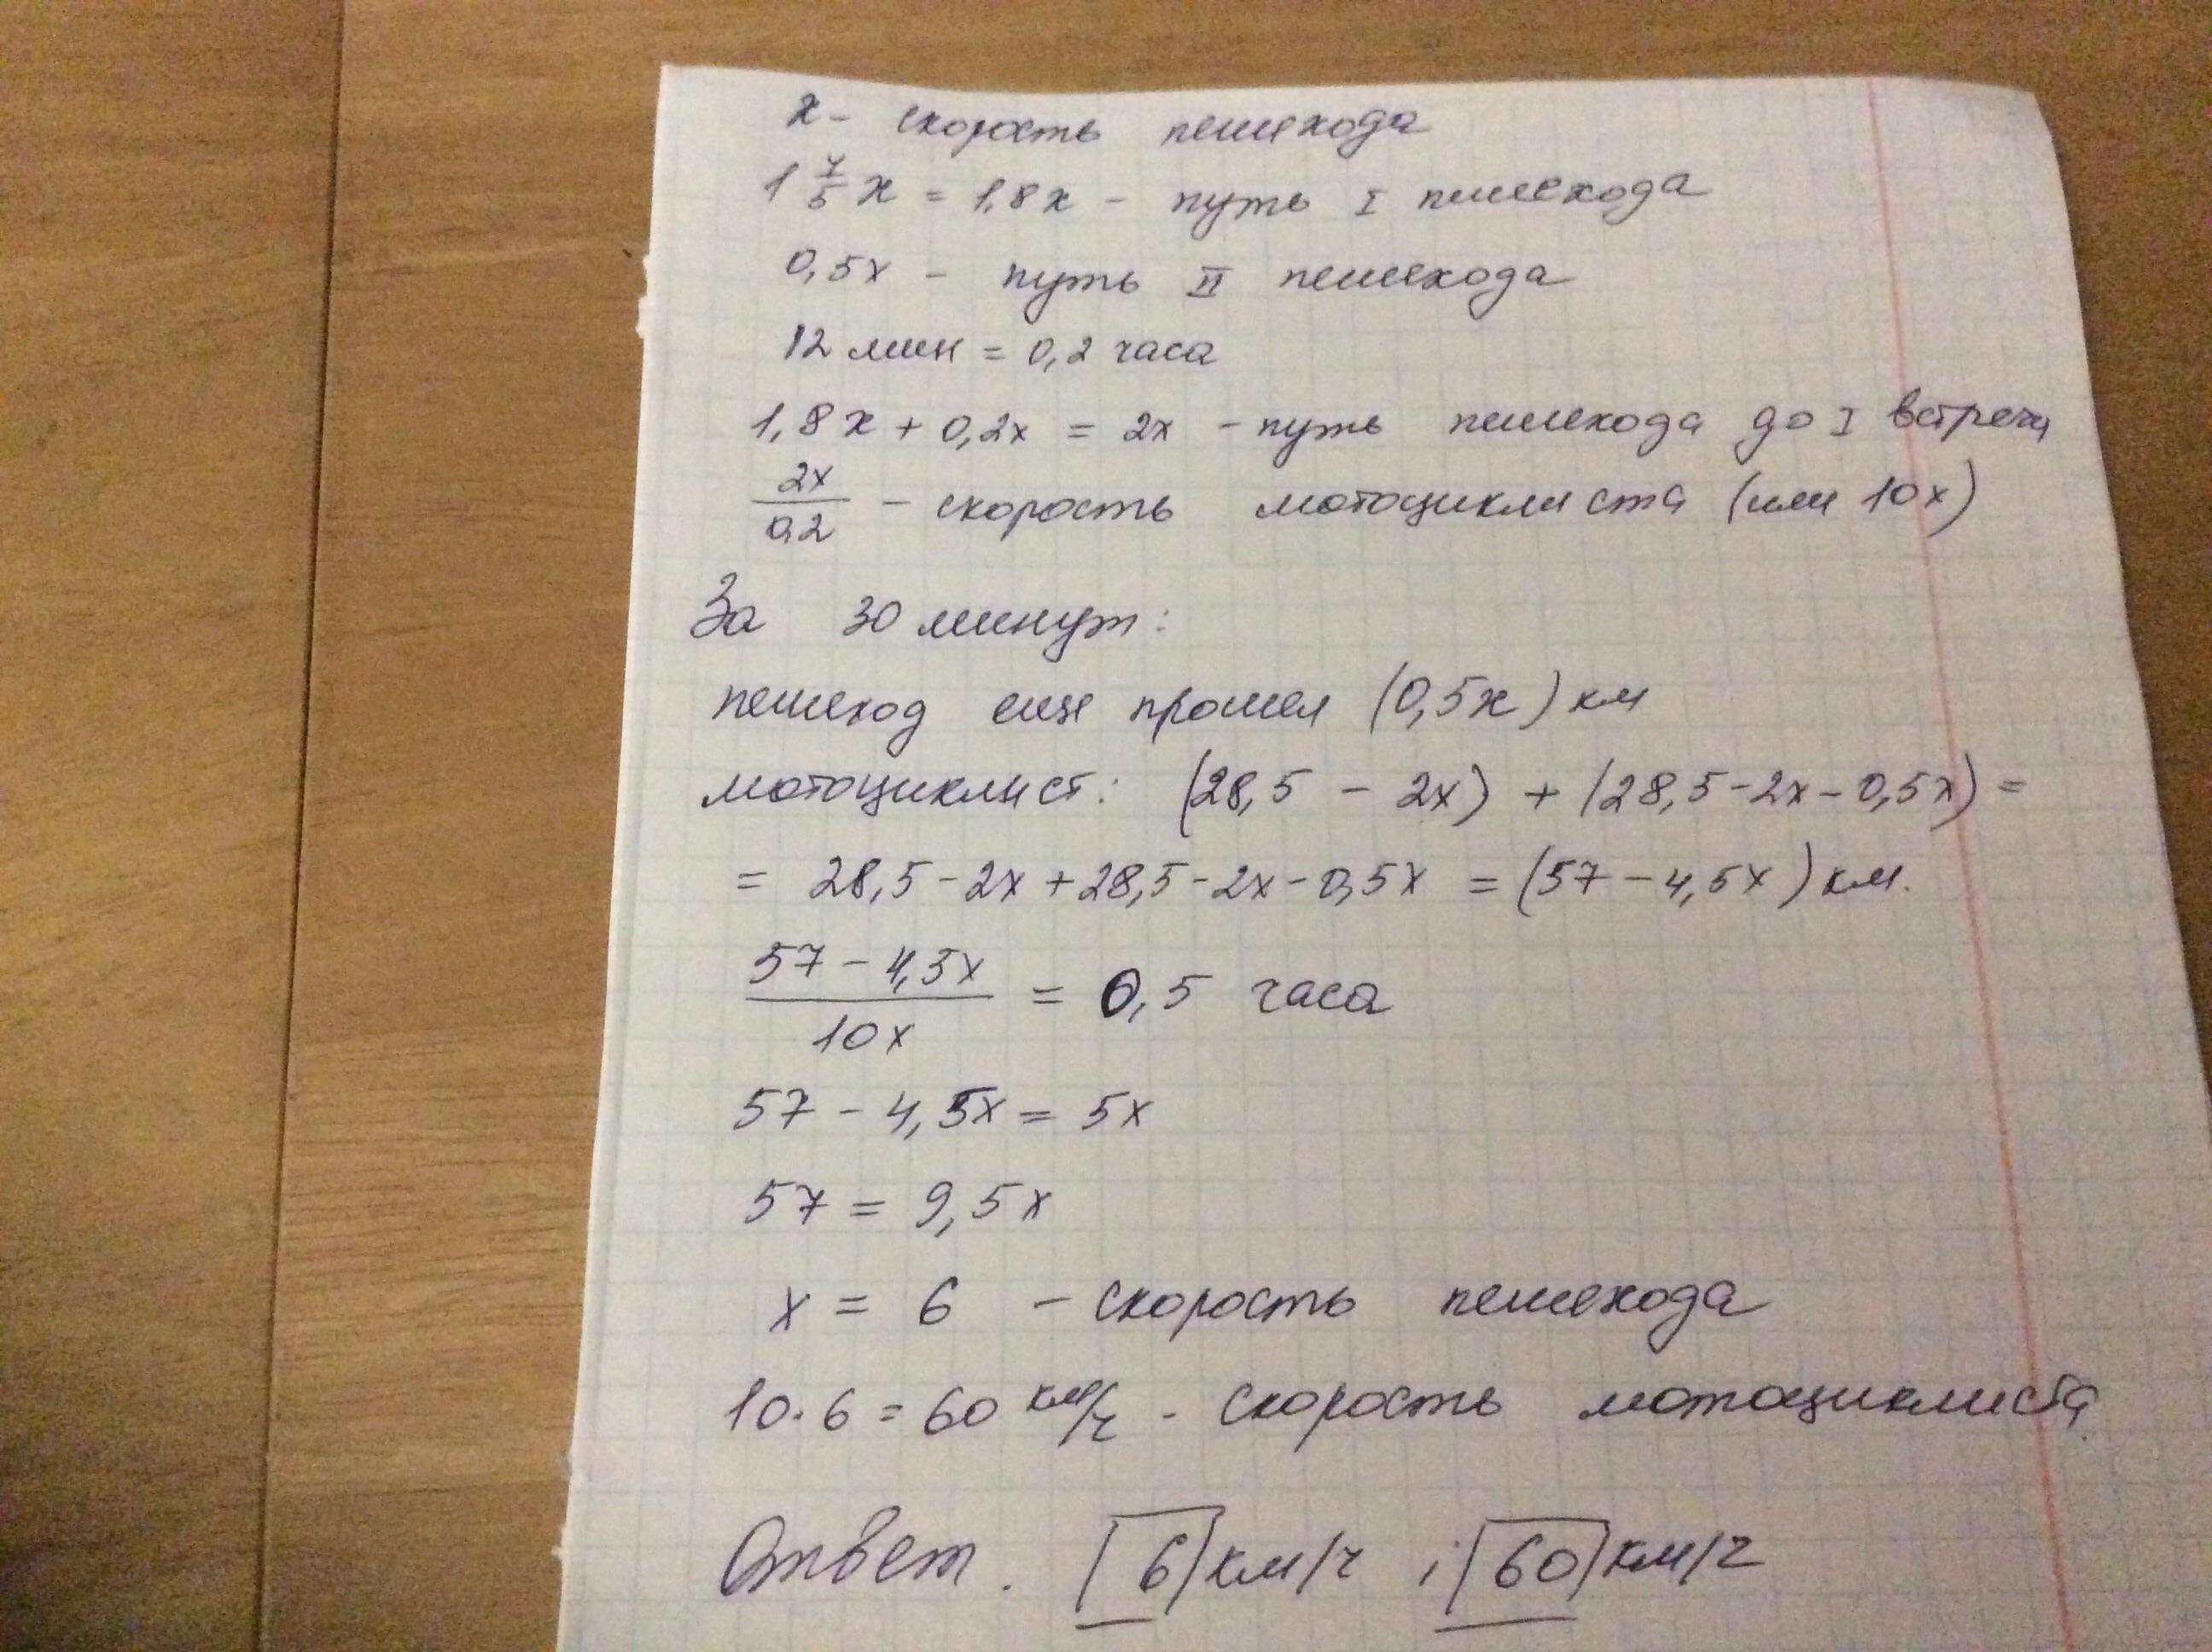 x - скорость пешехода
1 4/5 x = 1,8x - путь I пешехода
0,5x - путь II пешехода
12 мин = 0,2 часа
1,8x + 0,2x = 2x - путь пешехода до I встречи
2x/0,2 - скорость мотоциклиста (или 10x)
За 30 минут:
пешеход еще прошел (0,5x) км
мотоциклист: (28,5 - 2x) + (28,5 - 2x - 0,5x) =
= 28,5 - 2x + 28,5 - 2x - 0,5x = (57 - 4,5x) км.
57 - 4,5x / 10x = 0,5 часа
57 - 4,5x = 5x
57 = 9,5x
x = 6 - скорость пешехода
10·6 = 60 км/ч - скорость мотоциклиста
Ответ. 6 км/ч ; 60 км/ч